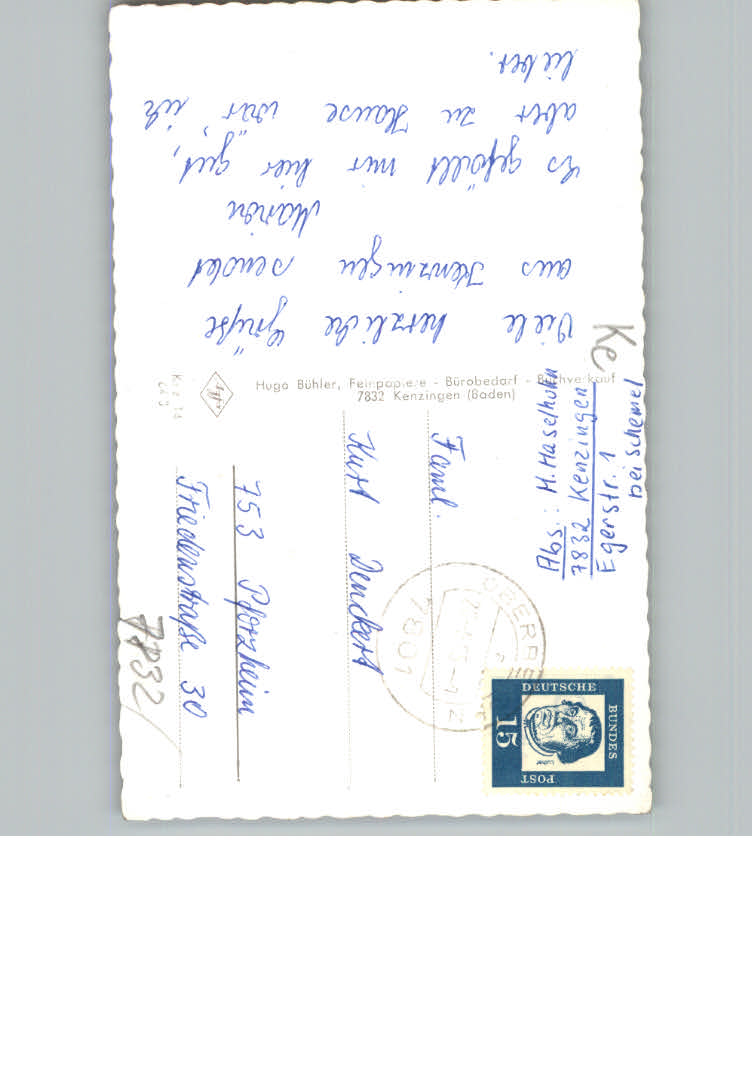 Viele herzliche Grüße
aus Kenzingen sendet
Marion
Es gefällt mir hier gut,
aber zu Hause wär' ich
lieber.
Ke
Hugo Bühler, Feinpapiere - Bürobedarf - Buchverkauf
7832 Kenzingen (Baden)
Abs.: M. Haselhuhn
7832 Kenzingen
Egerstr. 1
bei Schemel
Faml.
Kurt Denckert
753 Pforzheim
Friedenstraße 30
7832/
7801
DEUTSCHE
BUNDES
POST
15
Luther